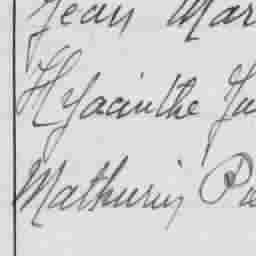 Jean Mar
Hyacinthe Ju
Mathurin Pie